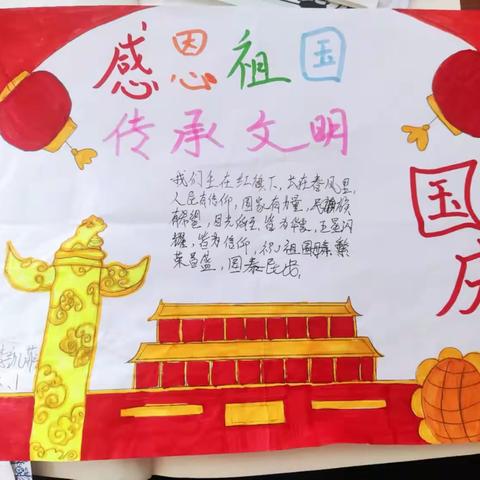 感恩祖国
传承文明
我们生在红旗下，长在春风里，
人民有信仰，国家有力量，民族
有希望，目光所至，皆为华夏，五星闪
耀，皆为信仰，祝祖国繁
荣昌盛，国泰民安。
国庆